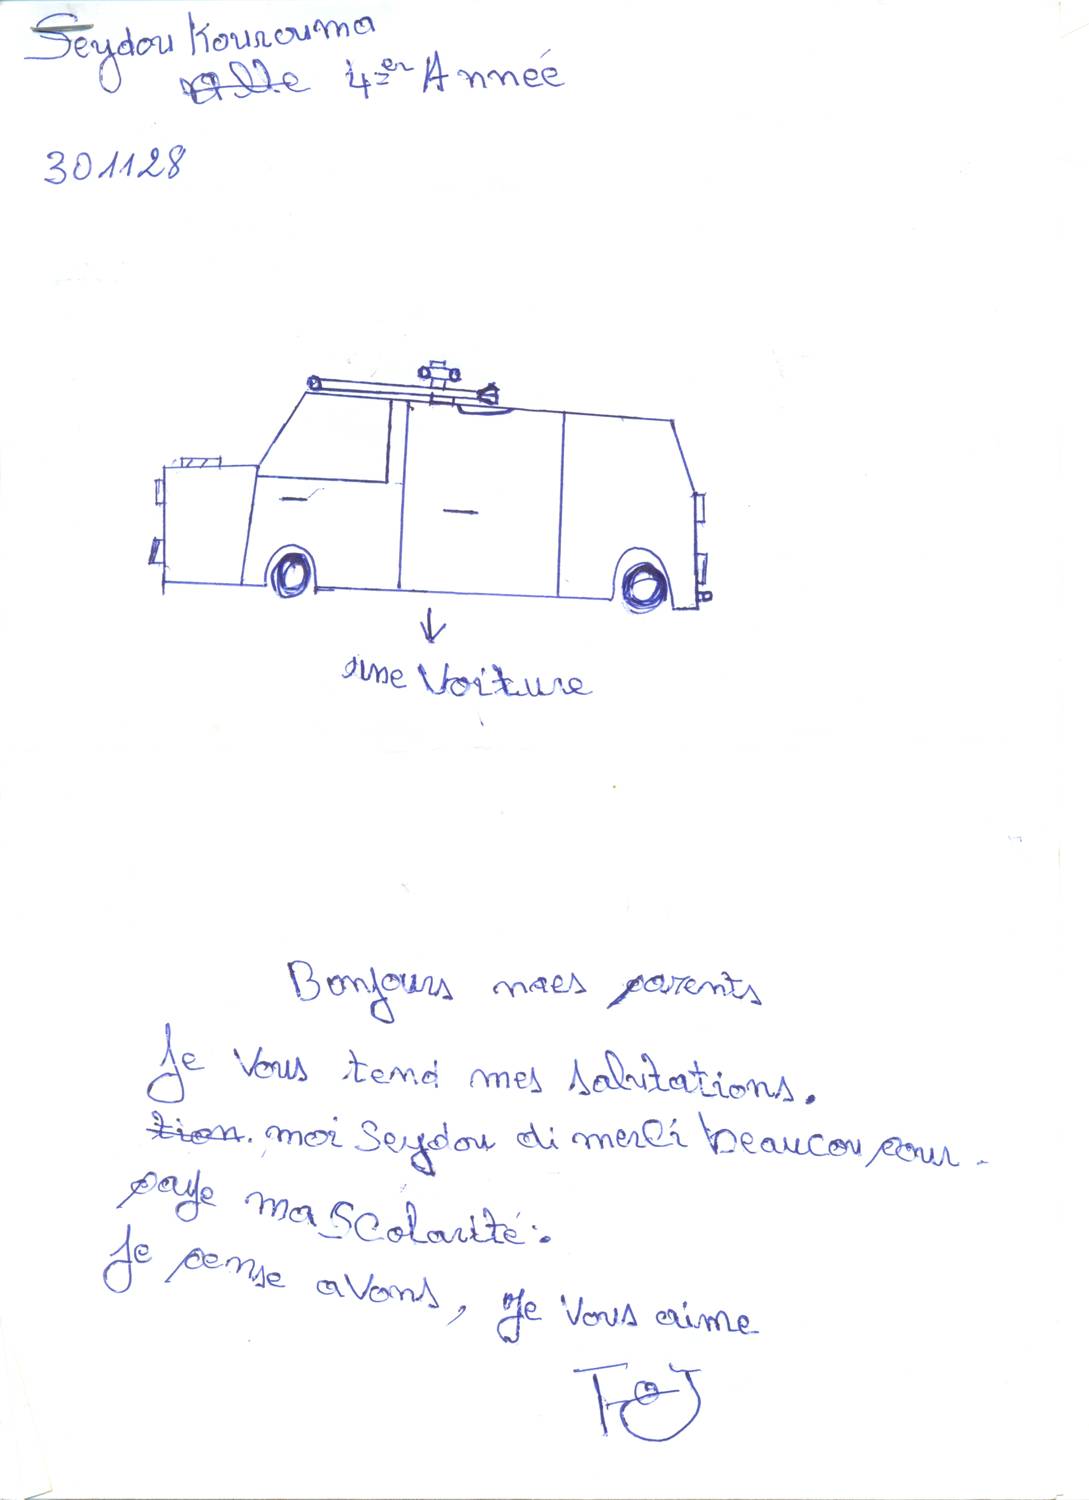 Seydou Kourouma
4er Année
301128
une Voiture
Bonjours maes parents
Je Vous tend mes salutations.
tion. moi Seydou di merci beaucou pour
paye ma scolarité.
Je pense avons, Je Vous aime